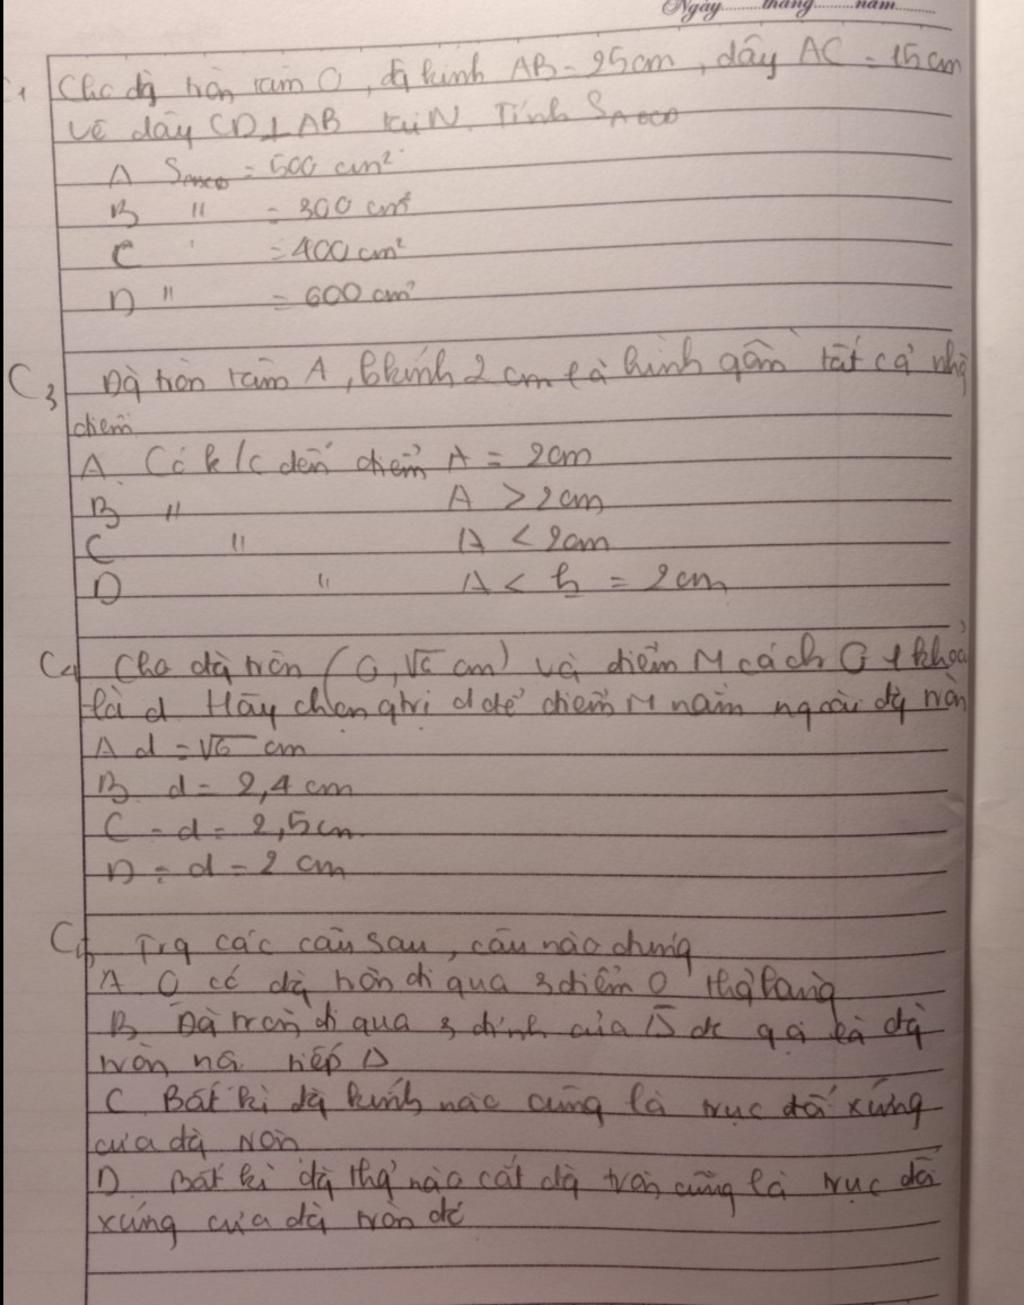 Ngày.........tháng.........năm.........
C1 Cho đg tròn tâm O, đg kính AB = 25cm, dây AC = 15cm
Vẽ dây CD⊥AB tại N. Tính S
A S = 500 cm²
B " = 300 cm²
C ' = 400 cm²
D " = 600 cm²
C3 Đg tròn tâm A, bkính 2 cm là hình gồm tất cả nhg
điểm
A. Có k/c đến điểm A = 2cm
B " A > 2cm
C " A < 2cm
D " A < = 2cm
C4 Cho đg tròn (O, √6 cm) và điểm M cách O 1 khoả
là d. Hãy chọn gtrị d để điểm M nằm ngoài đg tròn
A d = √6 cm
B. d = 2,4 cm
C - d = 2,5cm
D = d = 2 cm
C5 Trg các câu sau, câu nào đúng
A O có đg tròn đi qua 3 điểm O thg hàng
B. Đg tròn đi qua 3 đỉnh của Δ đc gọi là đg
tròn nội tiếp Δ
C. Bất kì đg kính nào cũng là trục đố xứng
của đg tròn
D. Bất kì đg thg nào cắt đg tròn cũng là trục đố
xứng của đg tròn đó